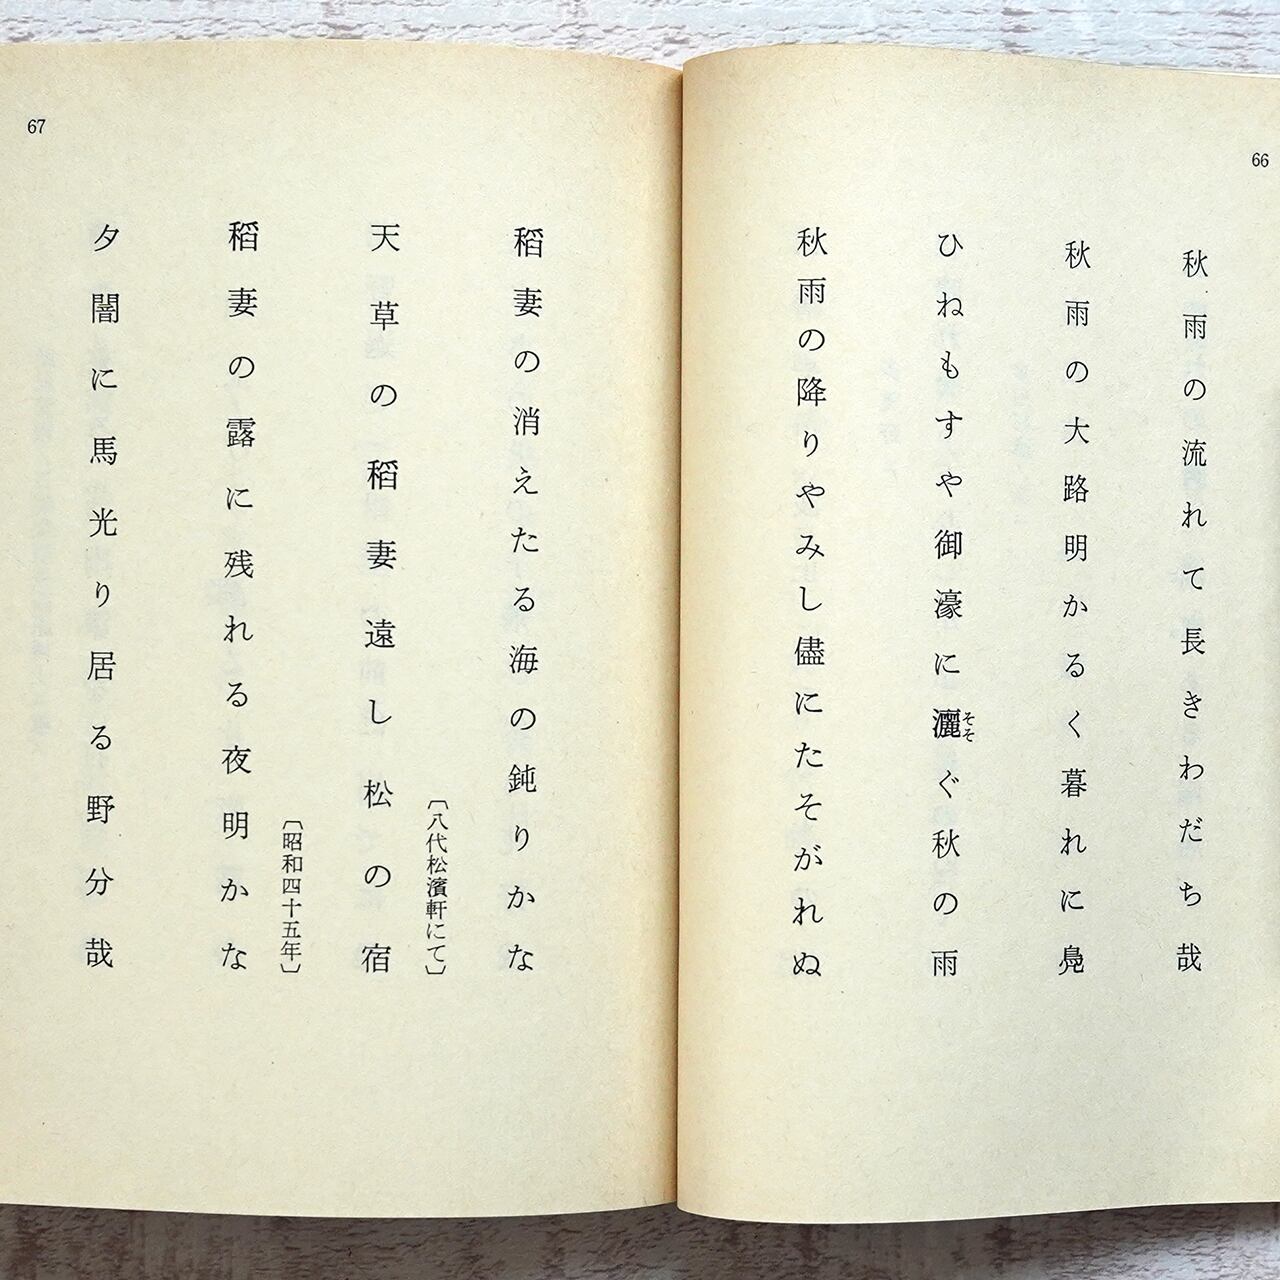 66
秋雨の流れて長きわだち哉
秋雨の大路明かるく暮れに鳬
ひねもすや御濠に灑ぐ秋の雨
そそ
秋雨の降りやみし儘にたそがれぬ
67
稲妻の消えたる海の鈍りかな
〔八代松濱軒にて〕
天草の稲妻遠し松の宿
〔昭和四十五年〕
稲妻の露に残れる夜明かな
夕闇に馬光り居る野分哉